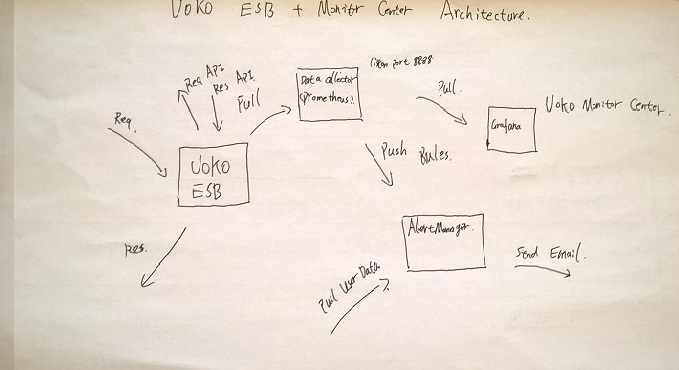 UoKo ESB + Monitor Center Architecture.
Req API.
Res API.
Pull
Data Collector
(Prometheus)
listen port 8888
Pull.
Grafana
UoKo Monitor Center.
Req.
UoKo
ESB
Res.
Push Rules.
AlertManager.
Send Email.
Pull User Data